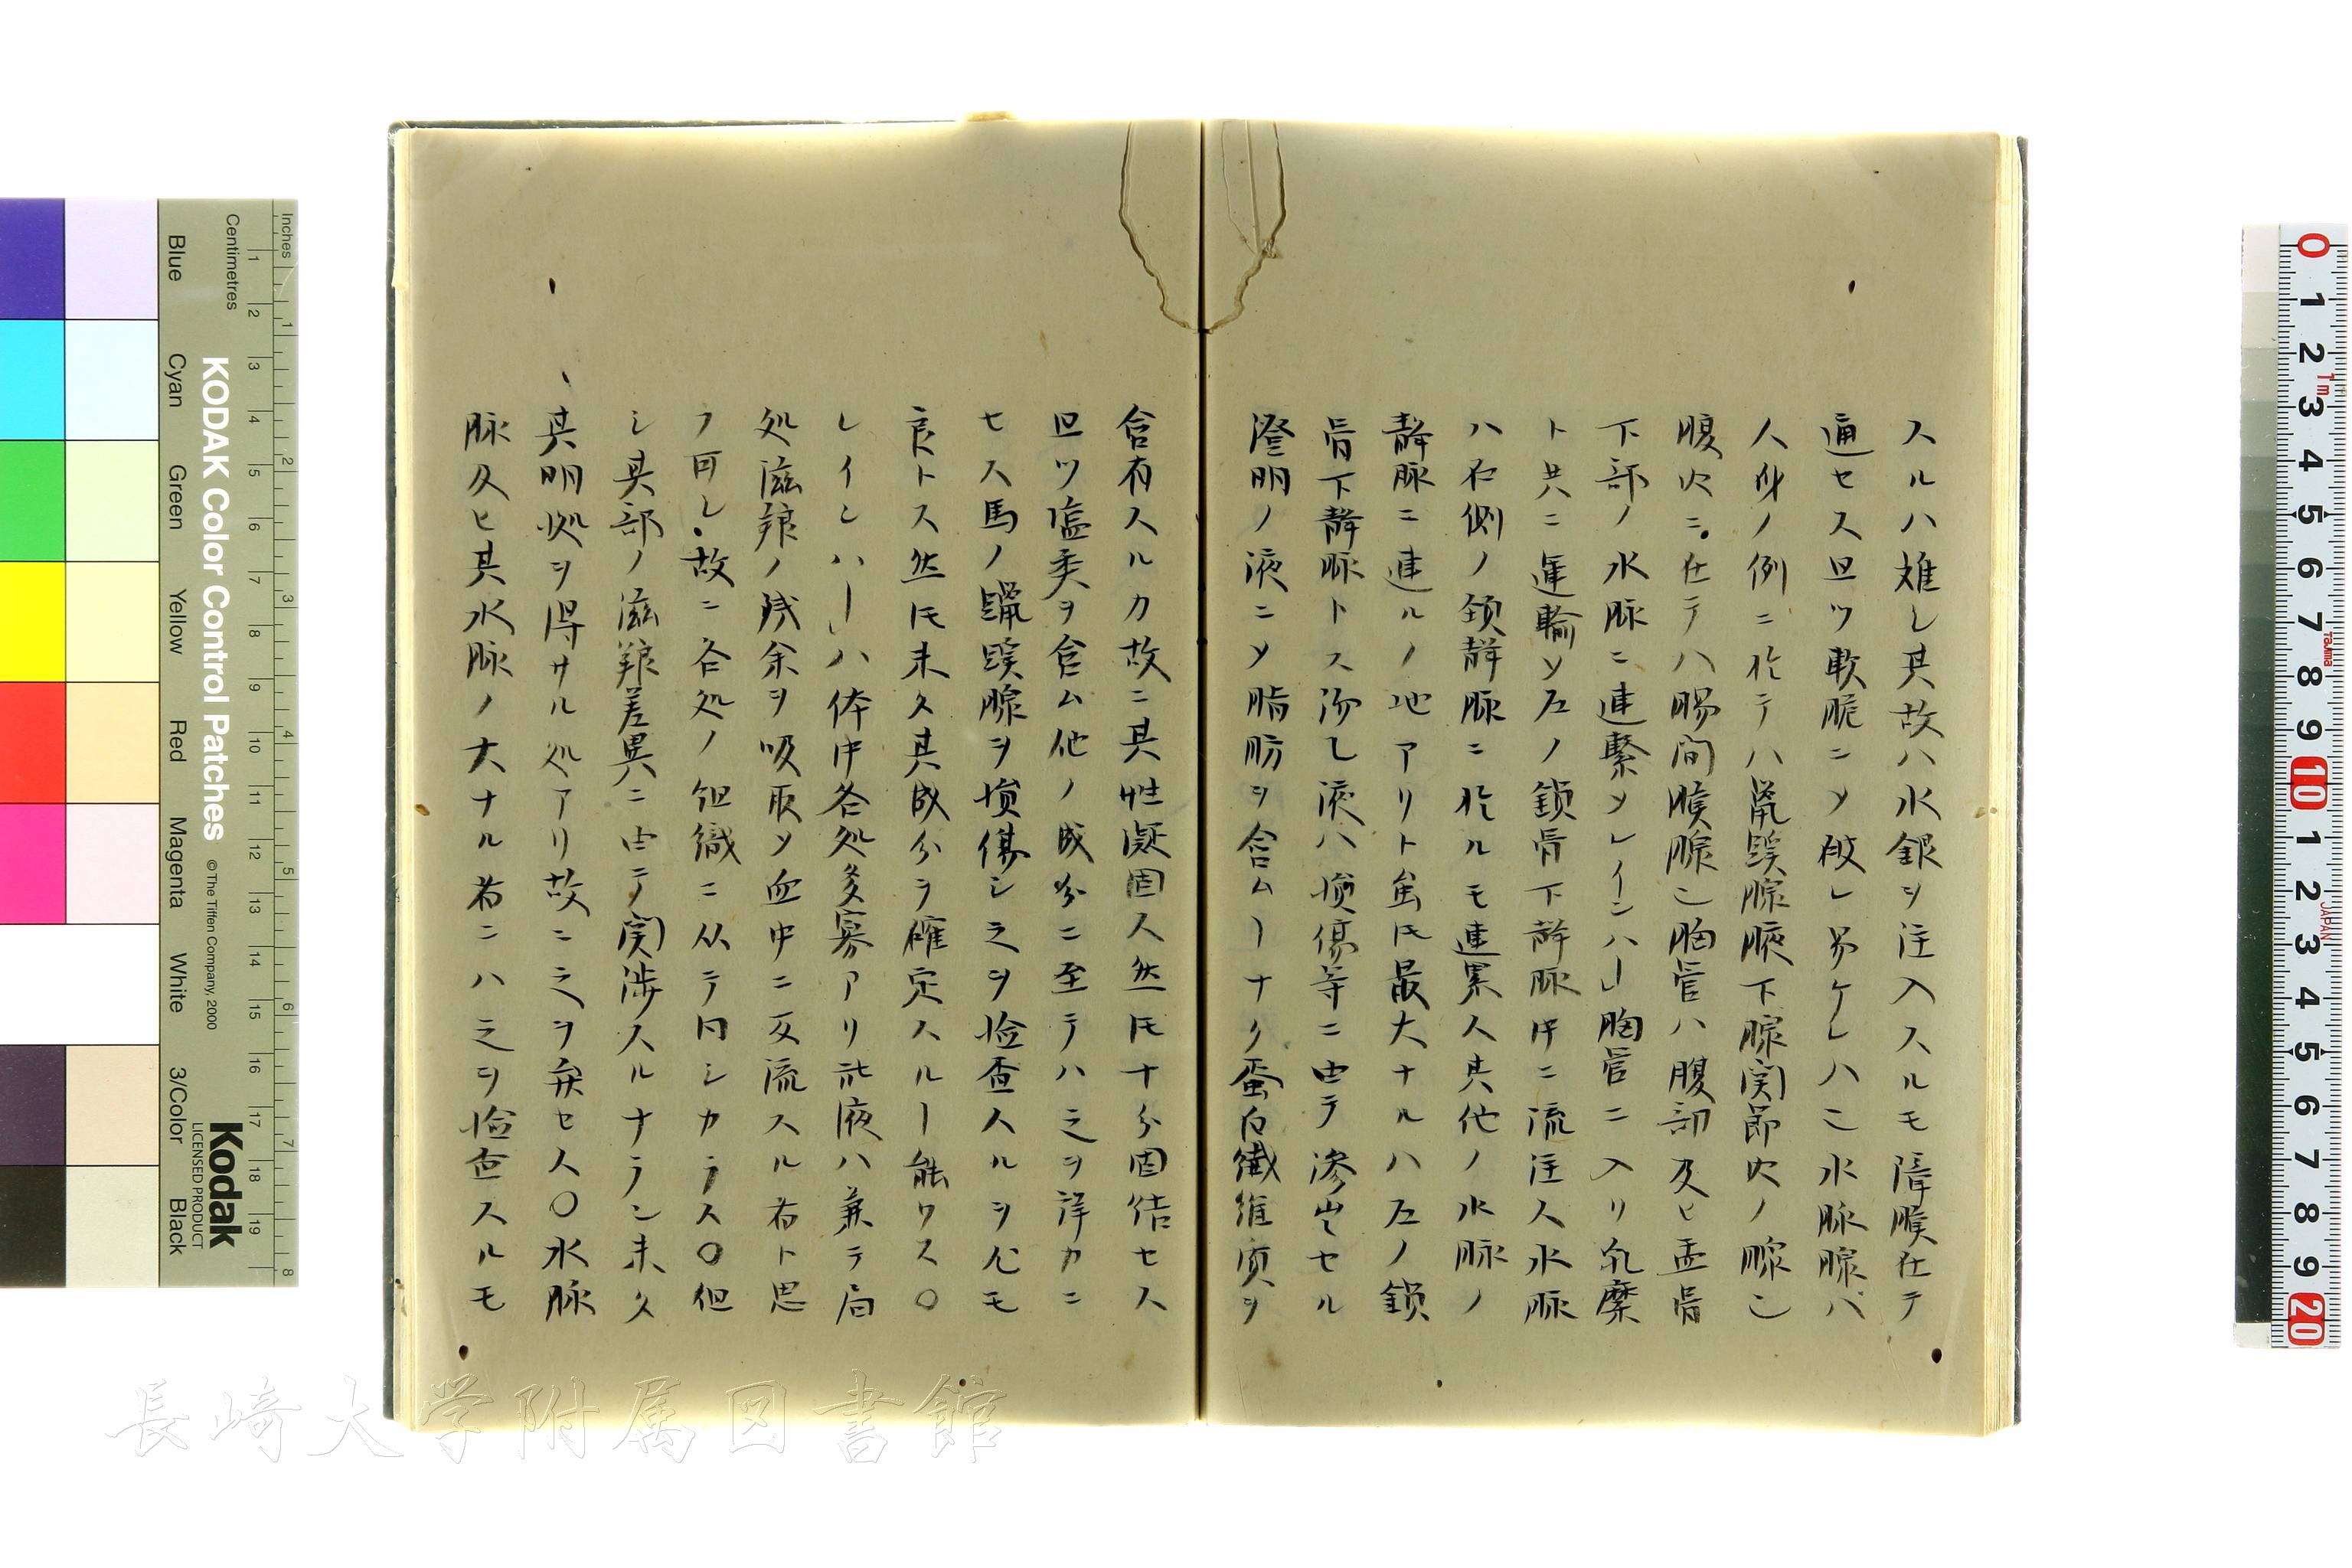 スルハ難し其故ハ水銀ヲ注入スルモ障膜在テ
通セス且ツ軟脆ニメ破レ易ケレハ水脈腺ハ
人身ノ例ニ於テハ鼠蹊腺腋下腺関節次ノ腺
腹次ニ在テハ腸間膜腺胸管ハ腹部及ヒ盂骨
下部ノ水脈ニ連繋メレインハー胸管ニ入リ乳糜
ト共ニ運輸メ左ノ鎖骨下静脈中ニ流注ス水脈
ハ右側ノ頚静脈ニ於ルモ連累ス其他ノ水脈ノ
静脈ニ連ルノ地アリト虽𪜈最大ナルハ左ノ鎖
骨下静脈トス液ハ損傷等ニ由テ滲出セル
澄明ノ液ニメ脂肪ヲ含ムーナク蛋白繊維質ヲ
含有スルカ故ニ其性凝固ス然𪜈十分固結セス
且ツ塩類ヲ含ム他ノ成分ニ至テハ之ヲ詳カニ
セス馬ノ鼠蹊腺ヲ損傷シ之ヲ検査スルヲ尤モ
良トス然𪜈未タ其成分ヲ確定スルー能ワス○
レインハー」ハ体中各処多寡アリ此液ハ兼テ局
処滋養ノ残余ヲ吸取メ血中ニ反流スル者ト思
フ可し故ニ各処ノ組織ニ从テ同シカラス○但
シ其部ノ滋養差異ニ由テ関渉スルナラン未タ
其明処ヲ得サル処アリ故ニ之ヲ弁セス○水脈
脈及ヒ其水脈ノ大ナル者ニハ之ヲ検査スルモ
Inches
Centimetres
1 2 3 4 5 6 7 8 9 10 11 12 13 14 15 16 17 18 19
1 2 3 4 5 6 7 8
KODAK Color Control Patches
© The Tiffen Company, 2000
Kodak
LICENSED PRODUCT
Blue Cyan Green Yellow Red Magenta White 3/Color Black
0 1 2 3 4 5 6 7 8 9 10 1 2 3 4 5 6 7 8 9 20
Tajima
JAPAN
長崎大学附属図書館